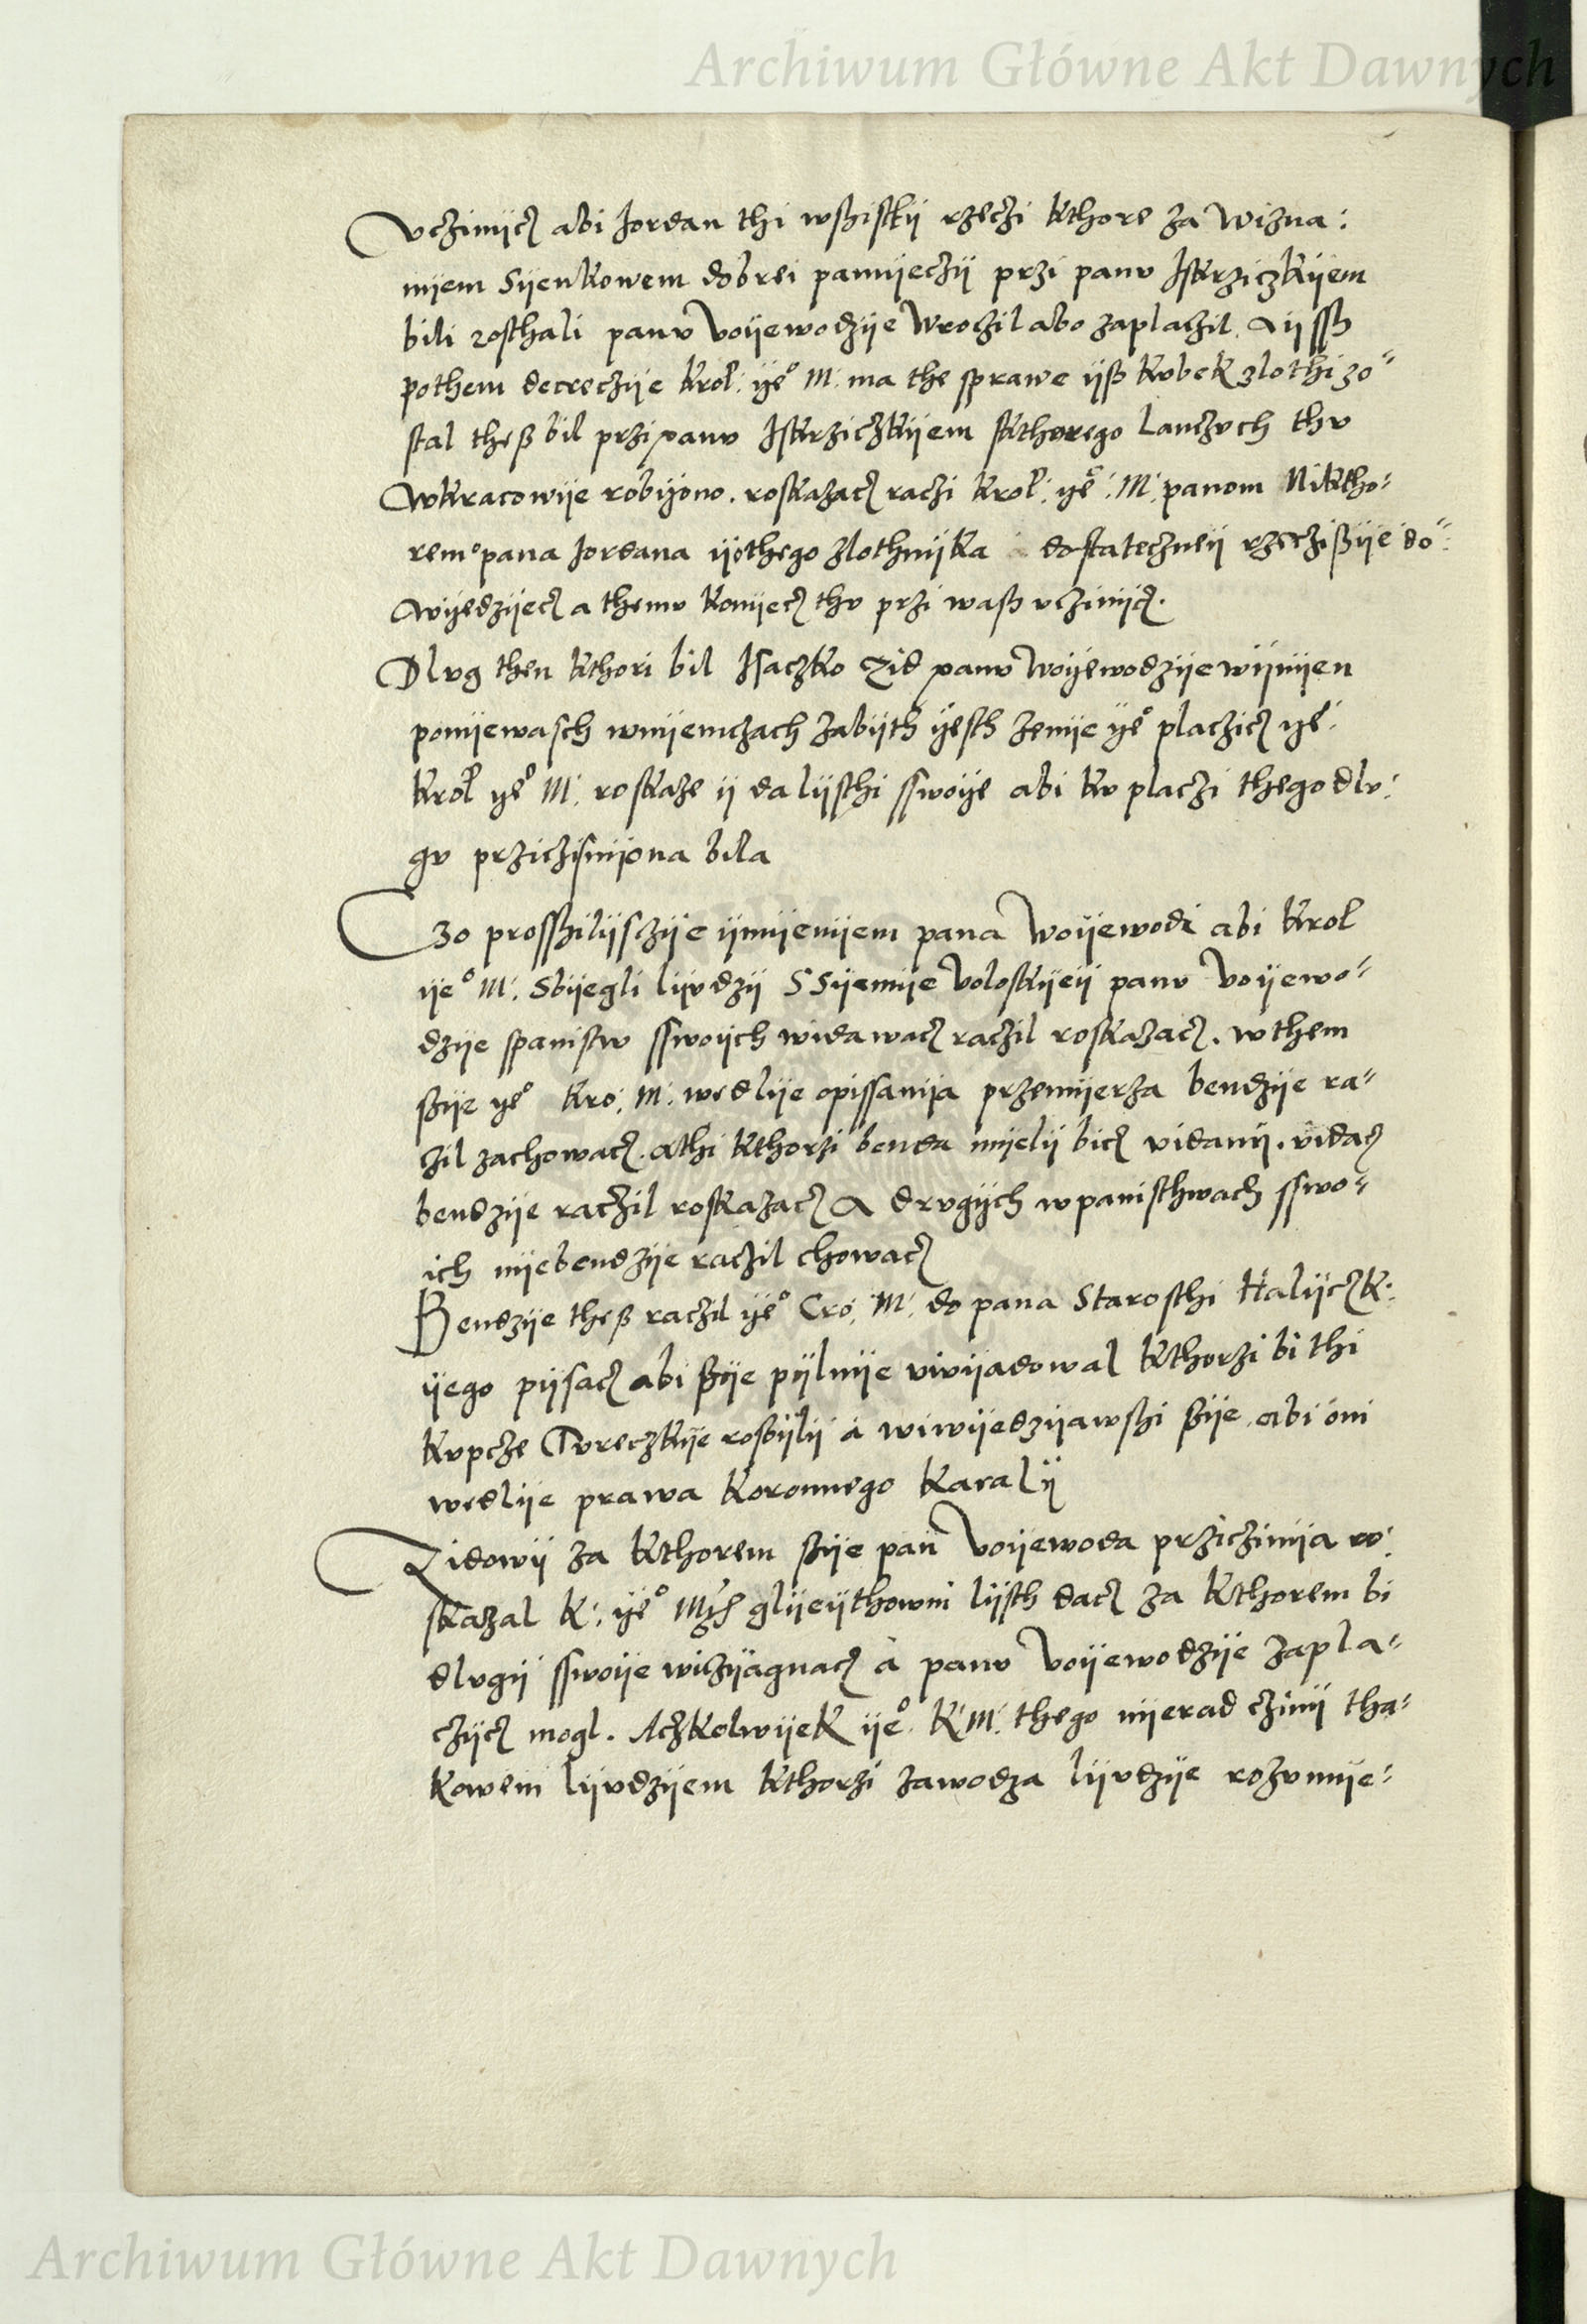 Archiwum Główne Akt Dawnych
vczinijcz abi Jordan thi wszistkij rzeczi kthore za wizna:
nijem Sijenkowem dobrei pamijeczij przi panv Iskrziczkijem
bili zosthali panv voijewodzije wroczil abo zaplaczil. A ijssz
pothem decreczije krol: ije° M: ma the sprawe ijsz kvbek zlothi zo=
stal thesz bil przi panv Iskrziczkijem skthorego Lanczvch thv
wkracowije robijono. roskazacz raczi krol: ije°: M: panom Niktho=
rem pana Jordana ij othego zlothnijka dostatecznelj rzeczi szije do=
wijedzijecz a themv konijecz thv przi wasz vczinijcz.
Dlvg then kthori bil Isaczko Zid panv woijewodzije wijnijen
ponijewasch wnijemczach zabijth ijesth zenije ije° placzicz ije°
krol ije° M: roskaze ij da lijsthi sswoije abi kv placzi thego dlv:
gv przicisnijona bila
Czo prosszilijsczije ijmijenijem pana woijewodi abi krol
ije° M: Sbijegli lijvdzij S Sijemije voloskijeij panv voijewo=
dzije spanistw sswoijch widawacz raczil roskazacz. w them
szije ije° kro: M: wedlije opissanija przemijerza bendzije ra=
czil zachowacz. Athi kthorzi benda mijelij bicz vidanij. vidacz
bendzije raczil roskazacz A drvgijch wpanisthwach sswo=
ich nijebendzije raczil chowacz
Bendzije thesz raczil ije° Cro: M: do pana Starosthi Halijczk:
ijego pijsacz abi szije pijlnije vivijadowal kthorzi bi thi
kvpcze Tvreczkije rosbijlij a wiwijedzijawshi szije abi oni
wedlije prawa koronnego karalij
Zidowij za kthorem szije pan voijewoda przicinija ro:
skazal k: ije° Mcz glijeijthowni lijsth dacz za kthorem bi
dlvgij sswoije wiczijagnacz a panv voijewodzije zapla=
czijcz mogl. Aczkolwijek ije° k: M: thego nijerad czinij tha=
kowem lijvdzijem kthorzi zawodza lijvdzije rozvmije=
Archiwum Główne Akt Dawnych